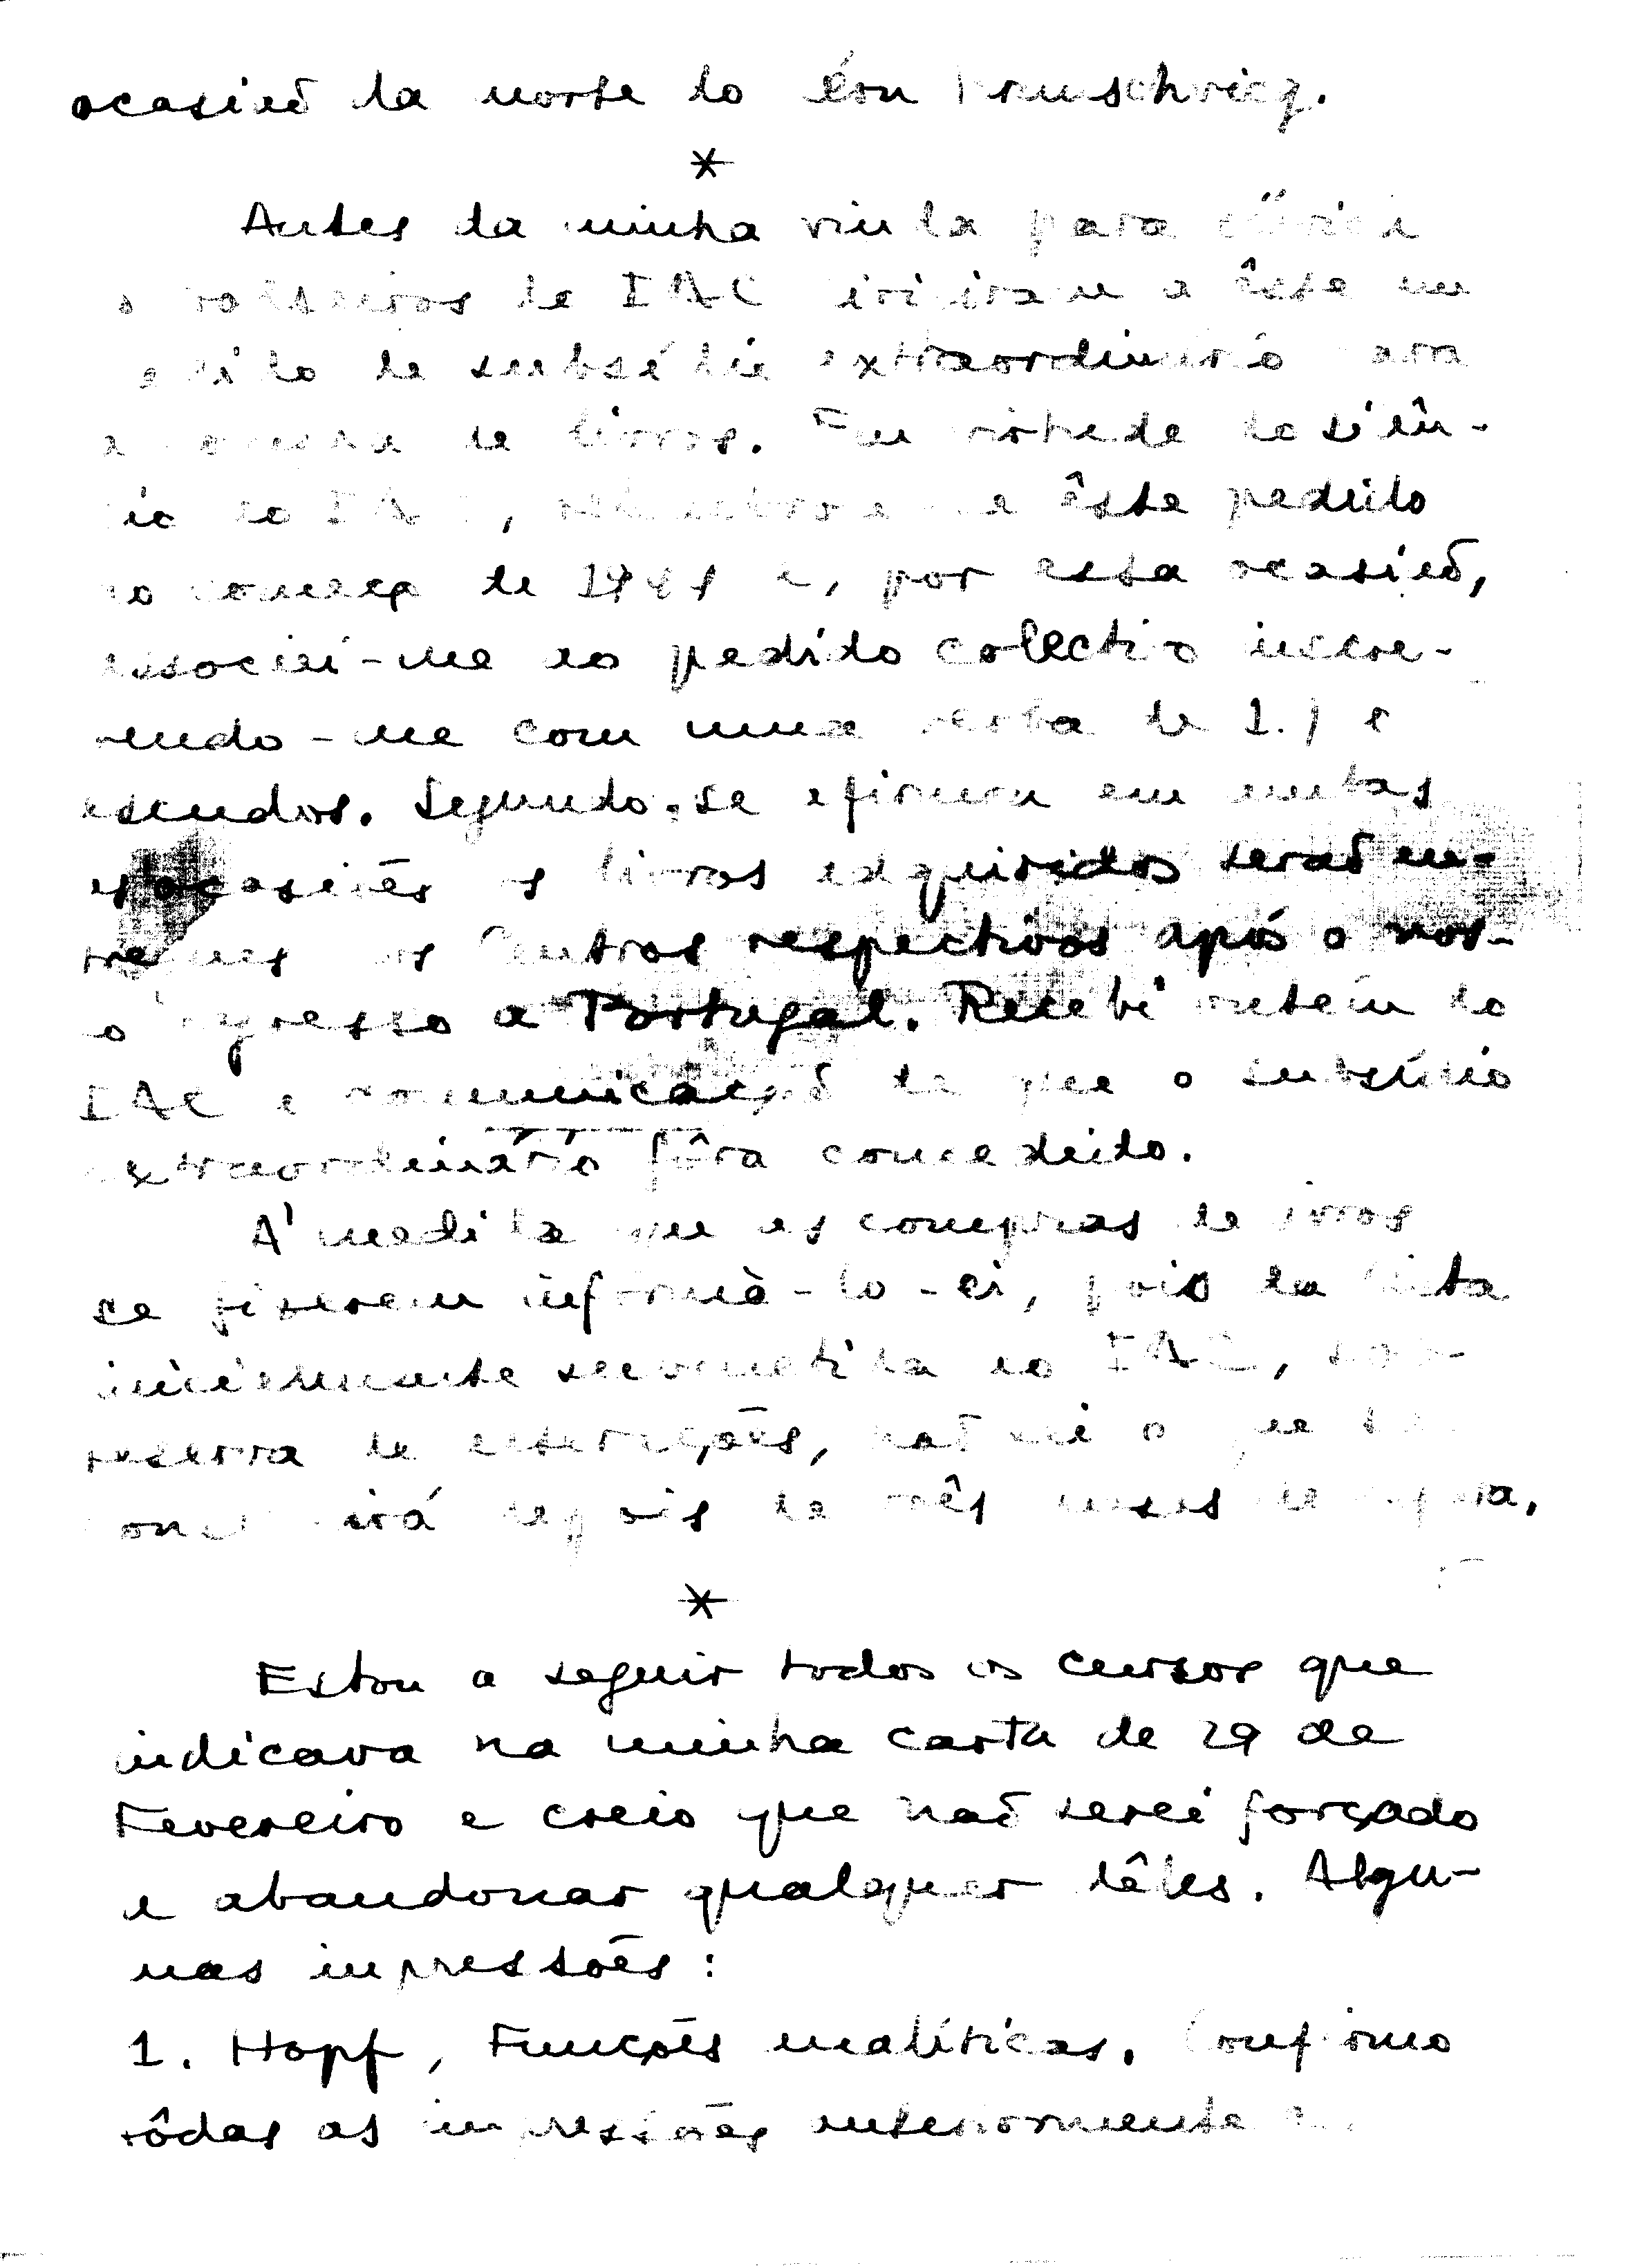 ocasião da morte do Léon Brunschvicg.
*
Antes da minha vinda para Zürich
os bolseiros do IAC dirigiram a êste um
pedido de subsídio extraordinário para
a compra de livros. Em virtude do silên-
cio do IAC, a êste pedido
no começo de 1944 e, por essa ocasião,
associei-me ao pedido colectivo inscre-
vendo-me com uma verba de
escudos. Segundo se afirmou em ambas
as ocasiões os livros adquiridos serão en-
tregues aos Centros respectivos após o nos-
so regresso a Portugal. Recebi ontem do
IAC a comunicação de que o subsídio
extraordinário fôra concedido.
À medida que as compras de livros
se fizerem informá-lo-ei, pois da lista
inicialmente submetida ao IAC, sob
reserva de alterações, não sei o que se
conseguirá depois de três meses de espera.
*
Estou a seguir todos os cursos que
indicava na minha carta de 29 de
Fevereiro e creio que não serei forçado
a abandonar qualquer dêles. Algu-
mas impressões:
1. Hopf, Funções analíticas. Confirmo
tôdas as impressões anteriormente